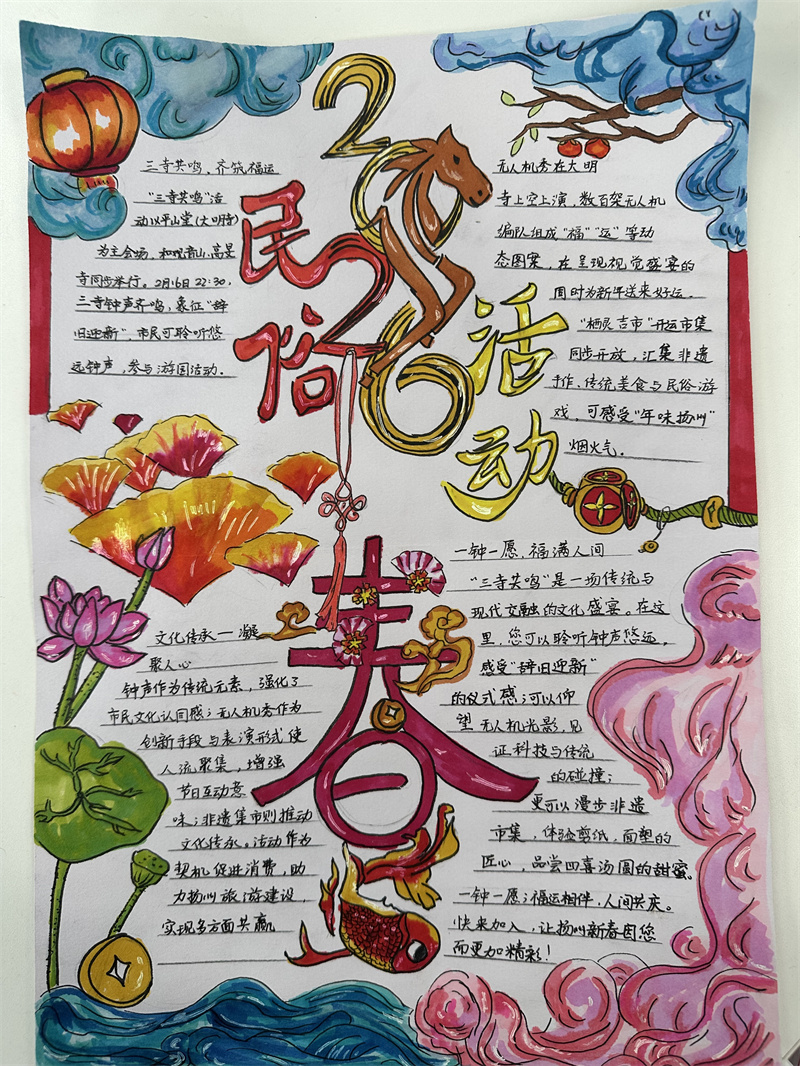 2026
民俗
活动
三寺共鸣，齐筑福运
“三寺共鸣”活
动以平山堂(大明寺)
为主会场，和观音山、高旻
寺同步举行。2月16日22:30，
三寺钟声齐鸣，象征“辞
旧迎新”，市民可聆听悠
远钟声，参与游园活动．
无人机秀在大明
寺上空上演，数百架无人机
编队组成“福”“运”等动
态图案，在呈现视觉盛宴的
同时为新年送来好运．
“栖灵吉市”开运市集
同步开放，汇集非遗
手作、传统美食与民俗游
戏，可感受“年味扬州”
烟火气。
春
文化传承一凝
聚人心
钟声作为传统元素，强化了
市民文化认同感；无人机秀作为
创新手段与表演形式使
人流聚集，增强
节日互动意
味；非遗集市则推动
文化传承。活动作为
契机促进消费，助
力扬州旅游建设，
实现多方面共赢
一钟一愿，福满人间
“三寺共鸣”是一场传统与
现代交融的文化盛宴。在这
里，您可以聆听钟声悠远，
感受“辞旧迎新”
的仪式感；可以仰
望无人机光影，见
证科技与传统
的碰撞；
更可以漫步非遗
市集，体验剪纸，面塑的
匠心，品尝四喜汤圆的甜蜜。
一钟一愿；福运相伴，人间共庆。
快来加入，让扬州新春因您
而更加精彩！